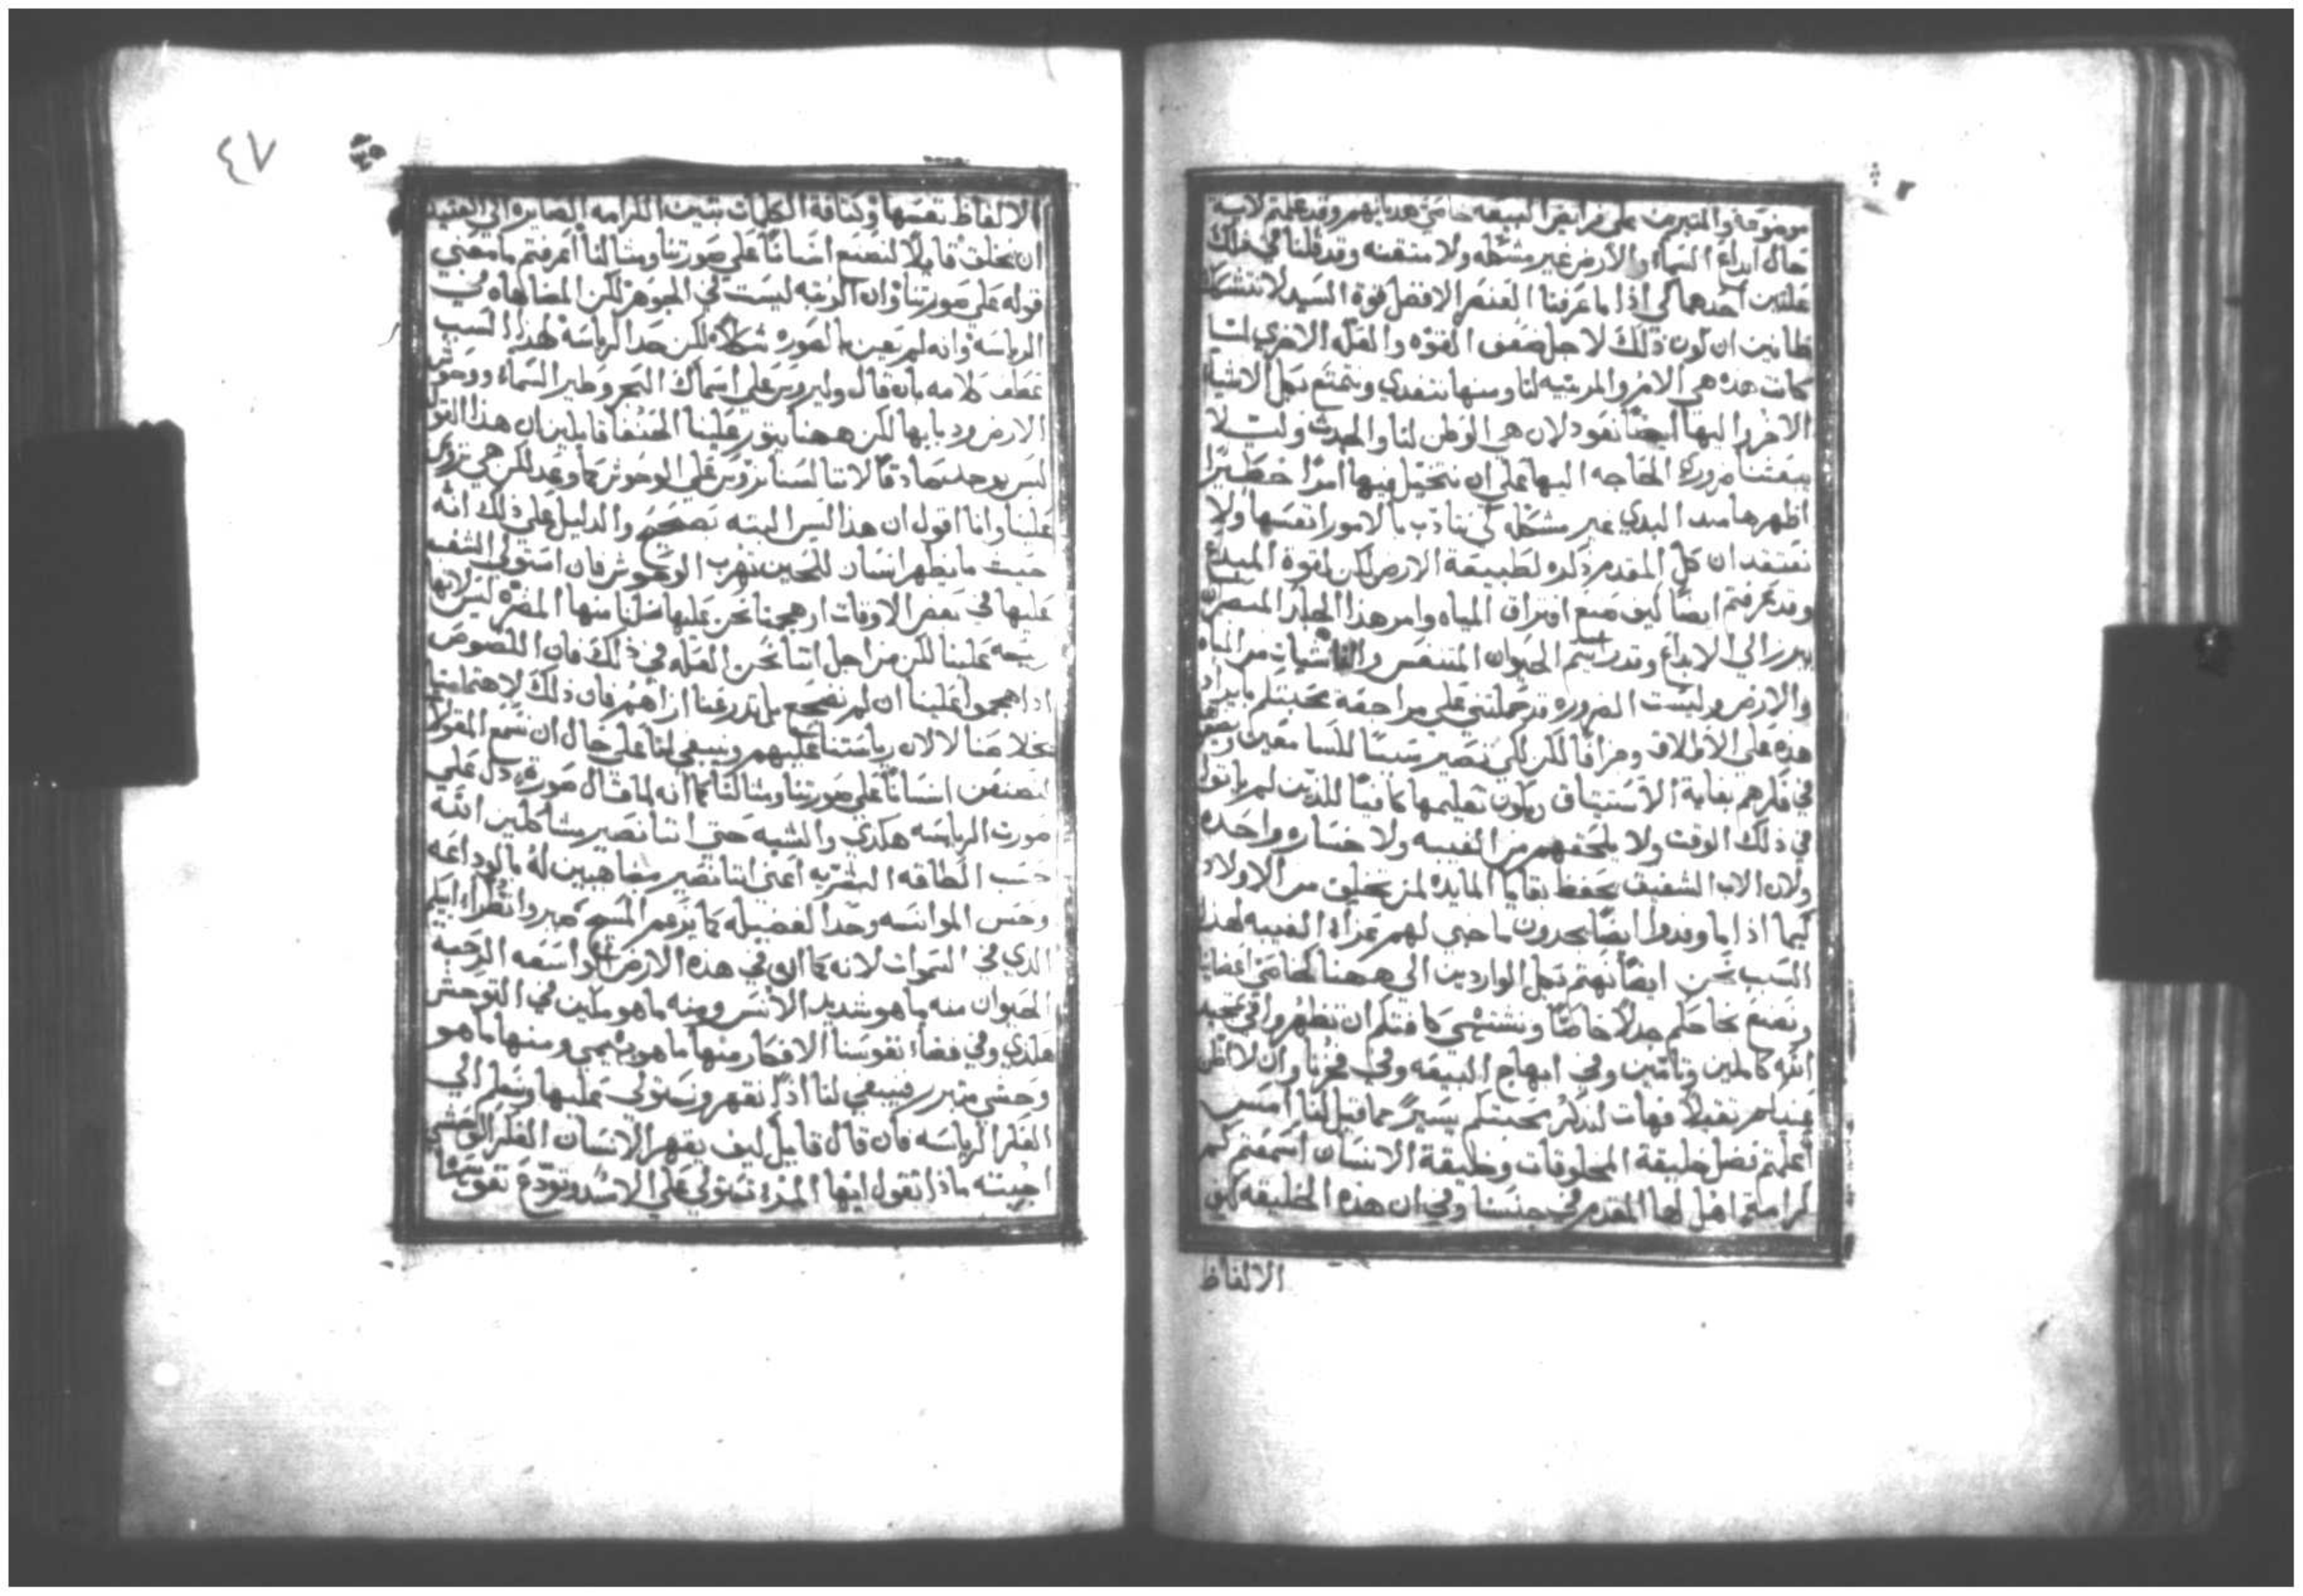 موضوعة والمتيرمن على فرايض البيعه خاصة هداياهم وقد علمتم لاية
حال ابداع السماء والارض غير مشكله ولا متقنه وقد قلنا في ذلك
علتين احدهما كي اذا ما عرفنا العنصر الافضل قوة السيد لا نتشكك
ظانين ان كون ذلك لاجل ضعف القوه والعله الاخري لما
كانت هذه هي الام والمربيه لنا ومنها نتغدي ونتمتع بكل الاشياء
الاخر واليها ايضًا نعود لان هي الوطن لنا والجدث وليلا
يبعثنا ضرورة الحاجه اليها على ان نتخيل فيها امرًا خطيرًا
اظهرها منذ البدي غير مشكله كي نتادب بالامور انفسها ولا
نعتقد ان كل المقدم ذكره لطبيعة الارض لكن لقوة المبدع
وقد عرفتم ايضًا كيف صنع افتراق المياه وامر هذا الجلد المبصر ان
يبرز الي الابداع وقد راسم الحيوان المتنفس والناشيات من المياه
والارض وليست الضروره تحملني على مراجعة محبتكم بايراد
هذه على الاطلاق وجزافًا لكن لكي نصير سببًا للسامعين
في فكرهم بغاية الاستيثاق ويكون تعليمها كافيًا للذين لم ياتوا
في ذلك الوقت ولا يلحقهم من الغيبه ولا خساره واحده
ولان الاب الشفيق يحفظ بقايا المايده لمن تخلف من الاولاد
كيما اذا ما وفدوا ايضًا يجدون ما خبي لهم عزاءً الغيبه لهذا
السبب نحن ايضًا نهتم بكل الواردين الي ههنا كخاصة اعضاينا
ونصنع نجاحكم جدلاً خاصًا ونشتهي كافتكم ان تظهروا في تمجيد
الله كاملين وتامين وفي ابهاج البيعه وفي فخرنا وان لا اظن
عندكم ثقيلاً فهات لنذكر محبتكم يسيرًا مما قيل لنا امس
اعلمتم فضل خليقة المخلوقات وخليقة الانسان اسمعتم كم
كرامة اهل لها المقدم في جنسنا وفي ان هذه الخليقه كيف
الالفاظ
٤٧
الالفاظ نفسها وكثافة الكلمات تبين الكرامه الصايره الي العتيد
ان يخلق قايلاً لنصنع انسانًا على صورتنا ومثالنا اعرفتم ما معني
قوله على صورتنا وان الرتبه ليست في الجوهر لكن المضاهاه في
الرياسه وانه لم يعين بالصوره شكلاً لكن حد الرياسه لهذا السبب
عطف كلامه بان قال وليروس على اسماك البحر وطير السماء ووحوش
الارض ودبابها لكن ههنا يثور علينا الحنفا قايلين ان هذا القول
ليس يوجد صادقًا لاننا لسنا نروس على الوحوش كما وعد لكن هي تروس
علينا وانا اقول ان هذا ليس البته بصحيح والدليل على ذلك انه
حيث ما يظهر انسان للحين تهرب الوحوش فان استولي الشغب
عليها في بعض الاوقات او هجمنا نحن عليها نلنا منها المضره ليس لانها
ريسه علينا لكن من اجل اننا نحن العله في ذلك فان اللصوص
اذا هجموا علينا ان لم نضجع بل تدرعنا ازاهم فان ذلك لاهتمامنا
بخلاصنا لا لان رياستنا عليهم وينبغي لنا على حال ان نسمع المقول
لنصنعن انسانًا على صورتنا ومثالنا كما انه لما قال صوره دل على
صورت الرياسه هكذي والشبه حتي اننا نصير مشاكلين الله
حسب الطاقه البشريه اعني اننا نصير مضاهيين له بالوداعه
وحسن الموانسه وحد الفضيله كما يزعم المسيح صيروا نظراء ابيكم
الذي في السموات لانه كما ان في هذه الارض الواسعه الرحبه
الحيوان منه ما هو شديد الانس ومنه ما هو مكين في التوحش
هكذي وفي فضاء نفوسنا الافكار منها ما هو بهيمي ومنها ما هو
وحشي متبرر فينبغي لنا اذًا نقهر ونستولي عليها ونسلم الي
الفكر الرياسه فان قال قايل كيف يقهر الانسان الفكر الوحشي
اجبته ماذا تقول ايها المرء نستولي على الاسد ونودع نفوسها